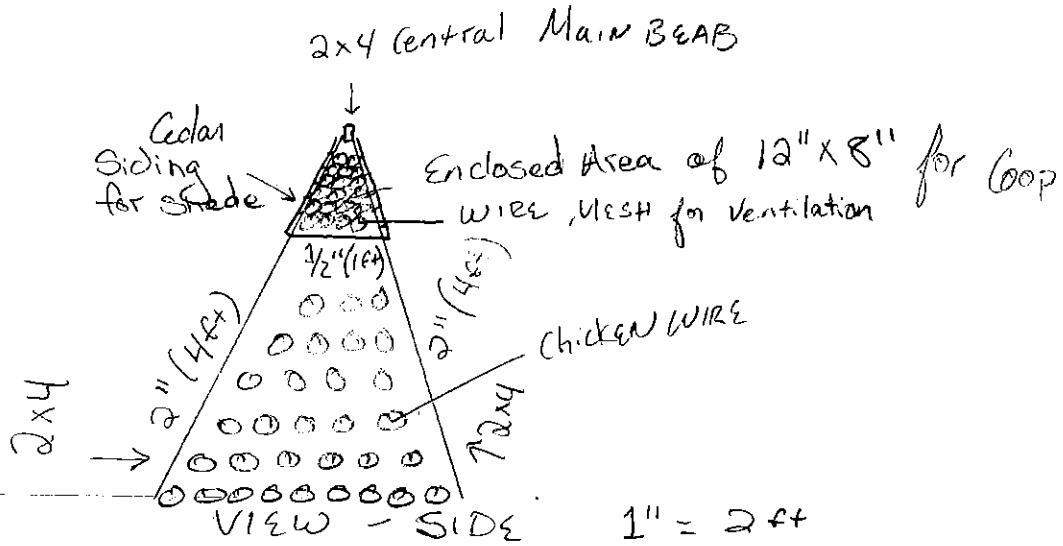 2x4 Central Main BEAB
Cedar
Siding
for shade
Enclosed Area of 12" x 8" for Coop
WIRE MESH for Ventilation
1/2" (1ft)
2" (4ft)
2" (4ft)
Chicken WIRE
2x4
2x4
VIEW - SIDE
1" = 2 ft